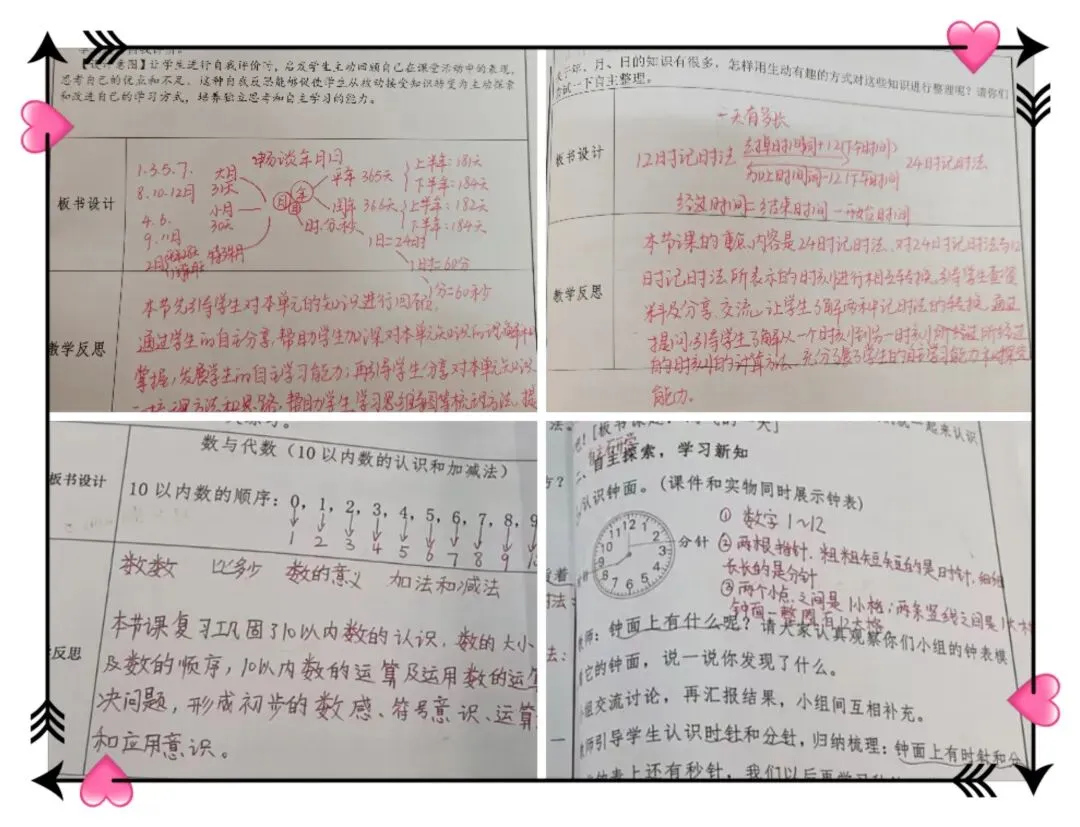 【设计意图】让学生进行自我评价时，启发学生主动回顾自己在课堂活动中的表现，
思考自己的优点和不足。这种自我反思能够促使学生从被动接受知识转变为主动探索
和改进自己的学习方式，培养独立思考和自主学习的能力。
板书设计
畅谈年月日
1.3.5.7.
8.10.12月
大月
31天
4.6.
9.11月
小月
30天
2月
特殊月
年
月
日
平年 365天
上半年：181天
下半年：184天
闰年 366天
上半年：182天
下半年：184天
时.分.秒
1日=24时
1时=60分
1分=60秒
教学反思
本节先引导学生对本单元的知识进行回顾，
通过学生的自主分享，帮助学生加深对本单元知识的理解和
掌握，发展学生的自主学习能力；再引导学生分享对本单元知识
帮助学生学习思维导图等梳理方法，提
关于年、月、日的知识有很多，怎样用生动有趣的方式对这些知识进行整理呢？请你们
尝试一下自主整理。
板书设计
一天有多长
12时记时法
24时记时法
经过时间=结束时间－开始时间
教学反思
本节课的重点内容是24时记时法，对24时记时法与12
时记时法所表示的时刻进行相互转换，引导学生查阅
资料及分享、交流，让学生了解两种记时法的转换，通过
提问，引导学生了解从一个时刻到另一时刻所经过所经过
的时刻的计算方法，充分了提了学生的自主学习能力和探究
能力。
板书设计
数与代数（10以内数的认识和加减法）
10以内数的顺序：0，1，2，3，4，5，6，7，8，9
1 2 3 4 5 6 7 8 9
数数 比多少 数的意义 加法和减法
反思
本节课复习巩固了10以内数的认识，数的大小
及数的顺序，10以内数的运算及运用数的运算
决问题，形成初步的数感、符号意识、运算
和应用意识。
起来认识
自主探索，学习新知
认识钟面。（课件和实物同时展示钟表）
12 1 2 3 4 5 6 7 8 9 10 11
分针
① 数字1~12
② 两根指针，粗粗短短的是时针，细细
长长的是分针
③ 两个小点之间是1小格；两条竖线之间是1大格
钟面一整圈有12大格
教师：钟面上有什么呢？请大家认真观察你们小组的钟表模
其它的钟面，说一说你发现了什么。
小组交流讨论，再汇报结果，小组间互相补充。
教师引导学生认识时针和分针，归纳梳理：钟面上有时针和分
钟表上还有秒针，我们以后再学习